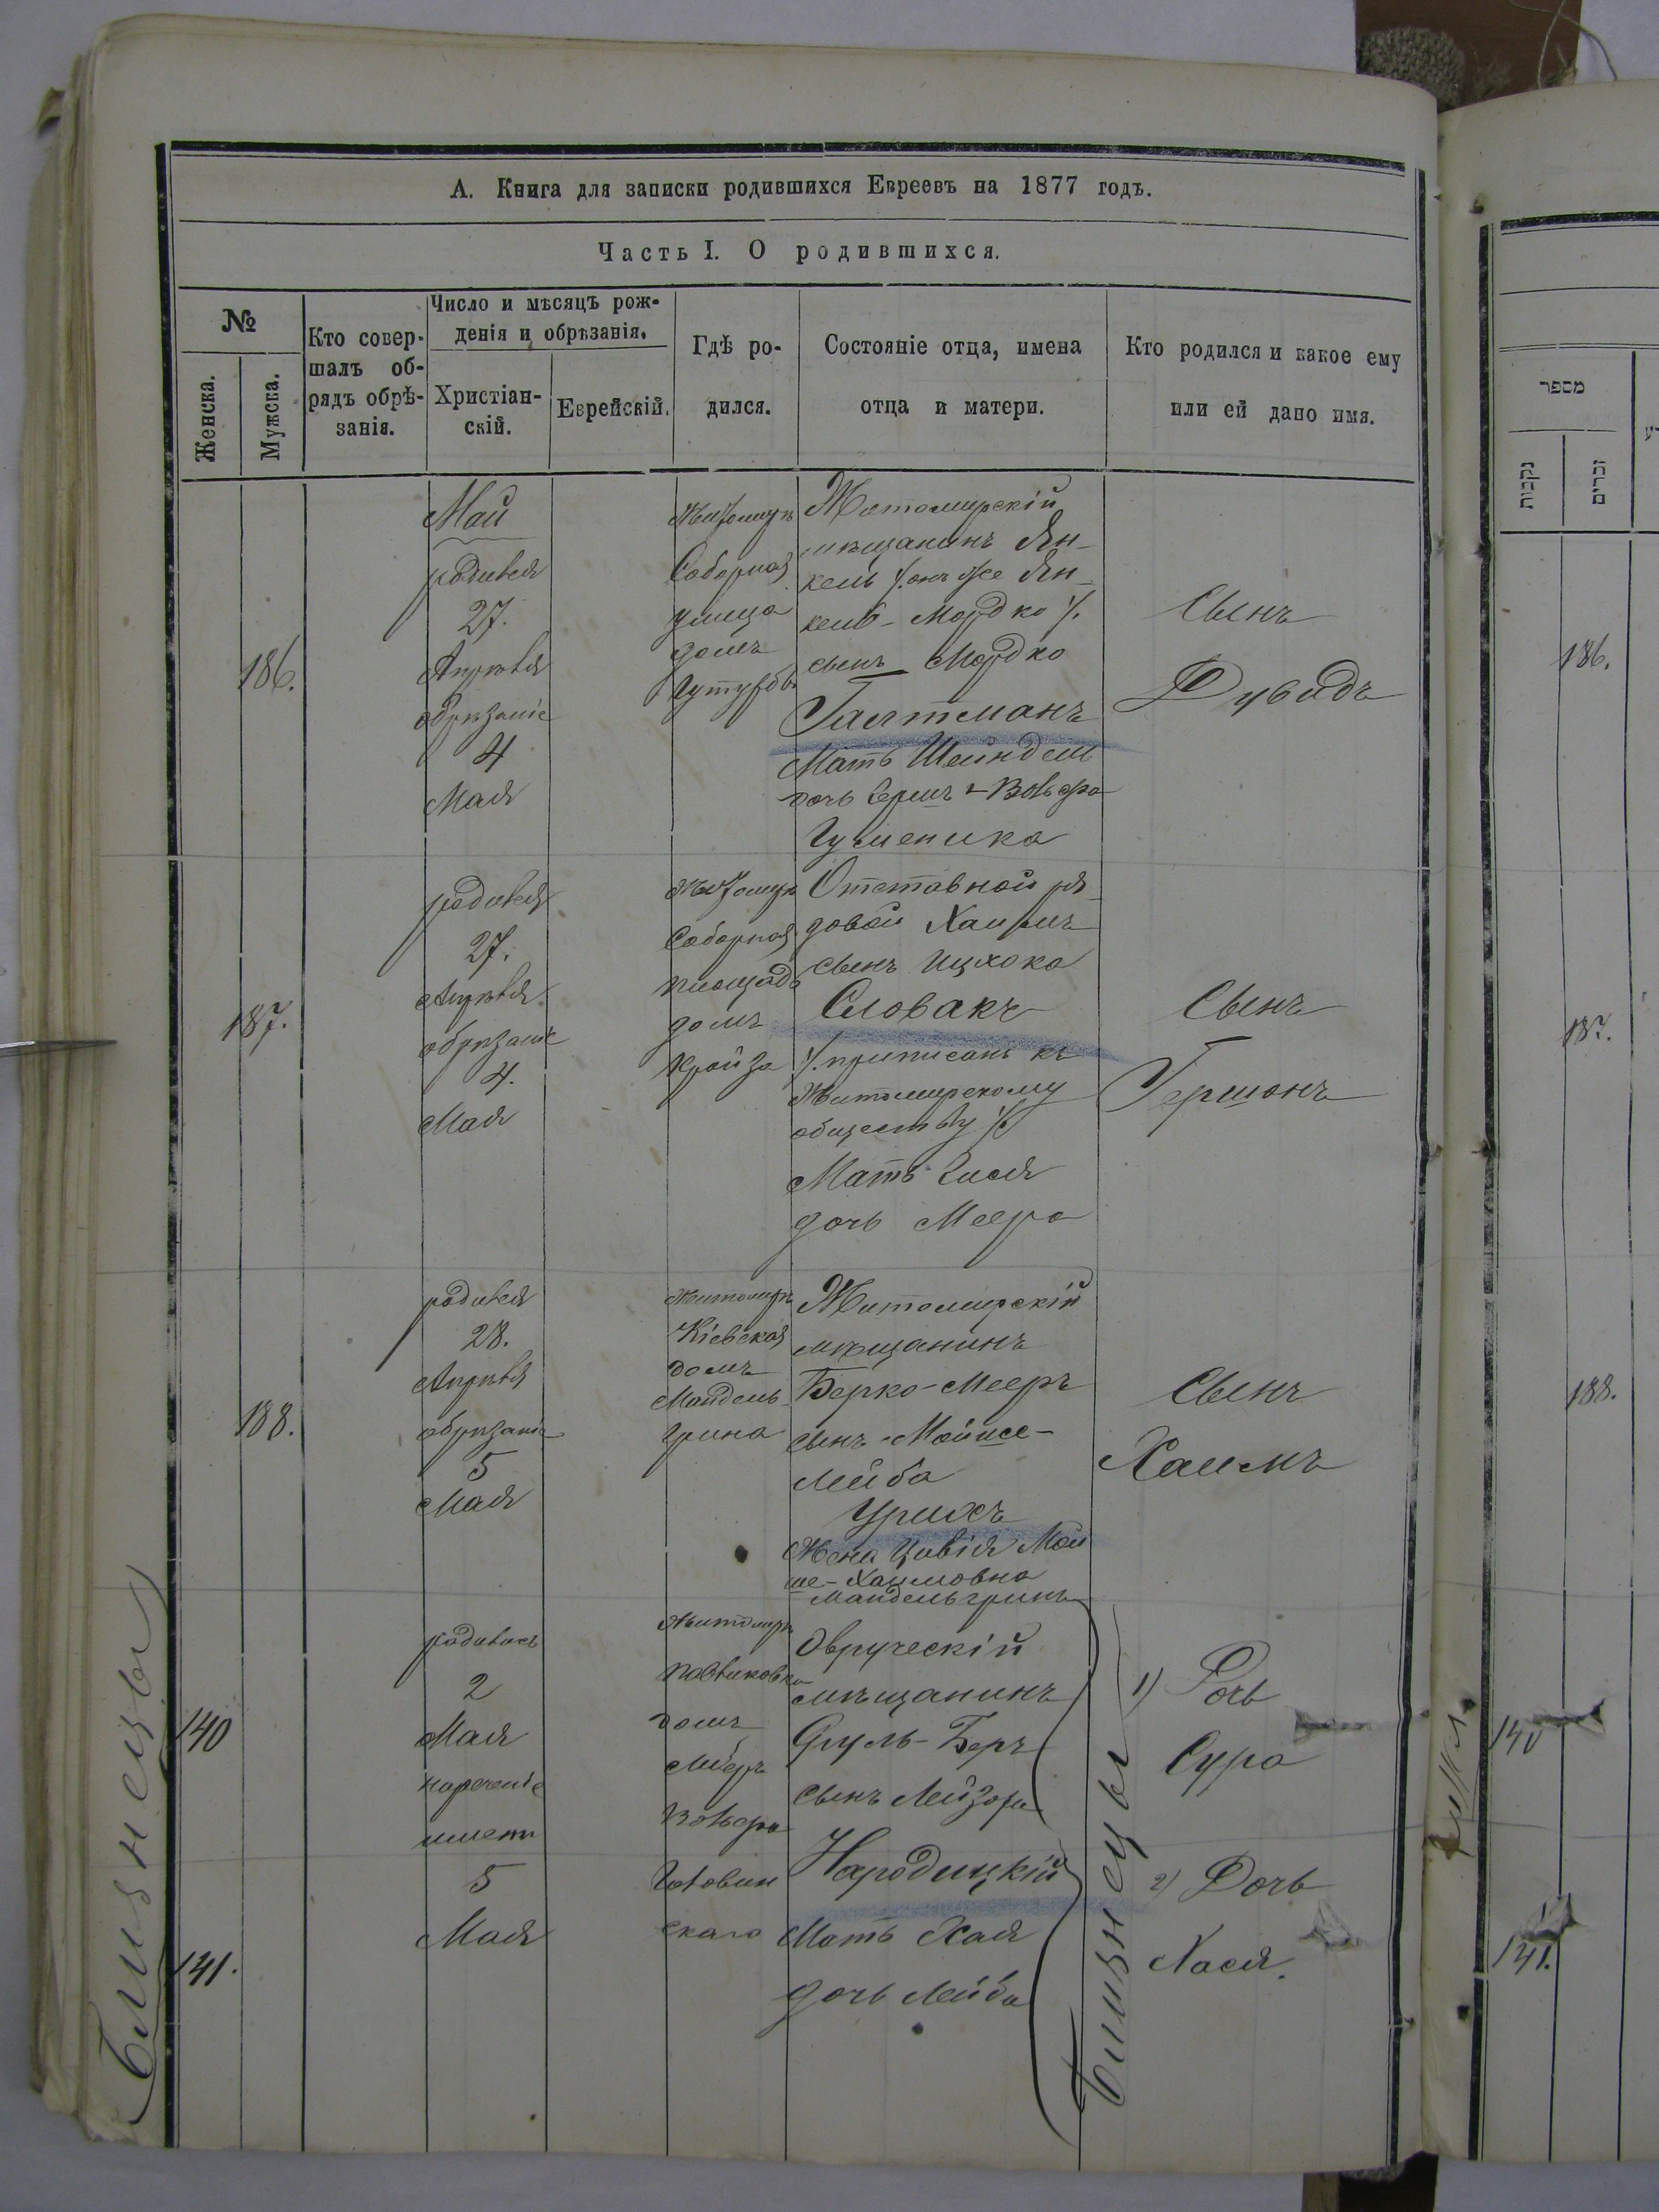 А. Книга для записки родившихся Евреевъ на 1877 годъ.
Часть I. О родившихся.
№
Женска.
Мужска.
Кто совер-
шалъ об-
рядъ обрѣ-
занія.
Число и мѣсяцъ рож-
денія и обрѣзанія.
Христіан-
скій.
Еврейскій.
Гдѣ ро-
дился.
Состояніе отца, имена
отца и матери.
Кто родился и какое ему
или ей дано имя.
186.
Май
родился
27.
Апрѣля
обрѣзаніе
4
Мая
Житомиръ
Соборная
улица
домъ
Житомирскій
мѣщанинъ Ян-
кель /. онъ же Ян-
кель-Мордко /.
сынъ Мордко
Галтманъ
Мать Шейндель
дочь Герша-Вольфа
Гуменика
Сынъ
Дувидъ
187.
родился
27.
Апрѣля
обрѣзаніе
4.
Мая
Житомиръ
Соборная
площадь
домъ
Крайза
Отставной ря-
довой Хаимъ
сынъ Ицхока
Словакъ
/. приписанъ къ
Житомирскому
обществу /.
Мать Гися
дочь Меера
Сынъ
Гершонъ
188.
родился
28.
Апрѣля
обрѣзаніе
5
Мая
Житомиръ
Кіевская
домъ
Мандель-
грина
Житомирскій
мѣщанинъ
Берко-Мееръ
сынъ Мойше-
Лейба
Урихъ
Жена Цивія Мой
ше-Хаимовна
Мандельгринъ
Сынъ
Хаимъ
140
141.
родились
2
Мая
нареченіе
имени
5
Мая
Житомиръ
домъ
Вольфа
скаго
Овруческій
мѣщанинъ
Сруль-Беръ
сынъ Лейзора
Народицкій
Мать Хая
дочь Лейба
Близнецы
1) Дочь
Сура
2) Дочь
Хася.
Близнецы
מספר
נקבות
זכרים
186.
187.
188.
140
141.